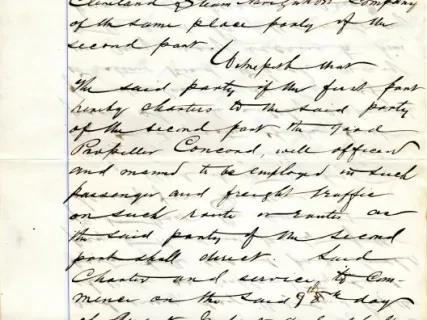 Cleveland Steam Company
of the same place party of the
second part.
Witnesseth that
The said party of the first part
hereby charters to the said party
of the second part, the good
Propeller Concord, well officered
and manned to be employed in such
passenger and freight traffic
on such route or routes as
the said party of the second
part shall direct. Said
Charter and service to Com-
mence on the said 9th day
of